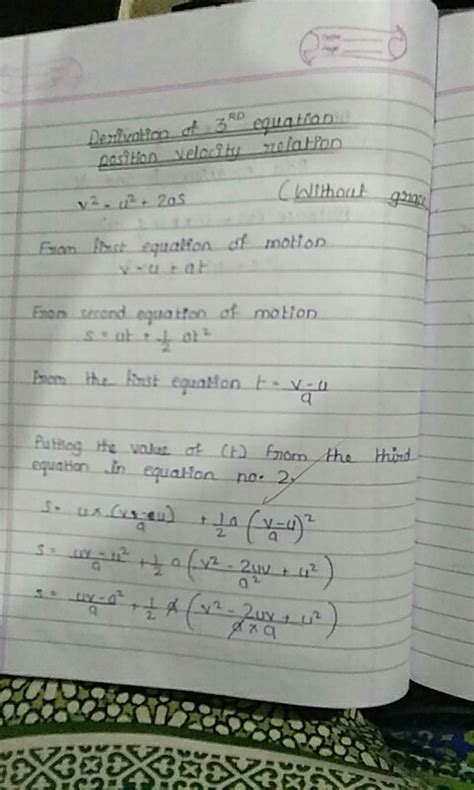 Derivation of 3RD equation
position velocity relation
v² = u² + 2as (Without
From first equation of motion
v = u + at
From second equation of motion
s = ut + 1/2 at²
From the first equation t = v-u/a
Putting the value of (t) from the third
equation in equation no. 2.
s = u × (v-u)/a + 1/2 a (v-u/a)²
s = uv - u²/a + 1/2 a (v² - 2uv + u²/a²)
s = uv - u²/a + 1/2 a (v² - 2uv + u²/a × a)